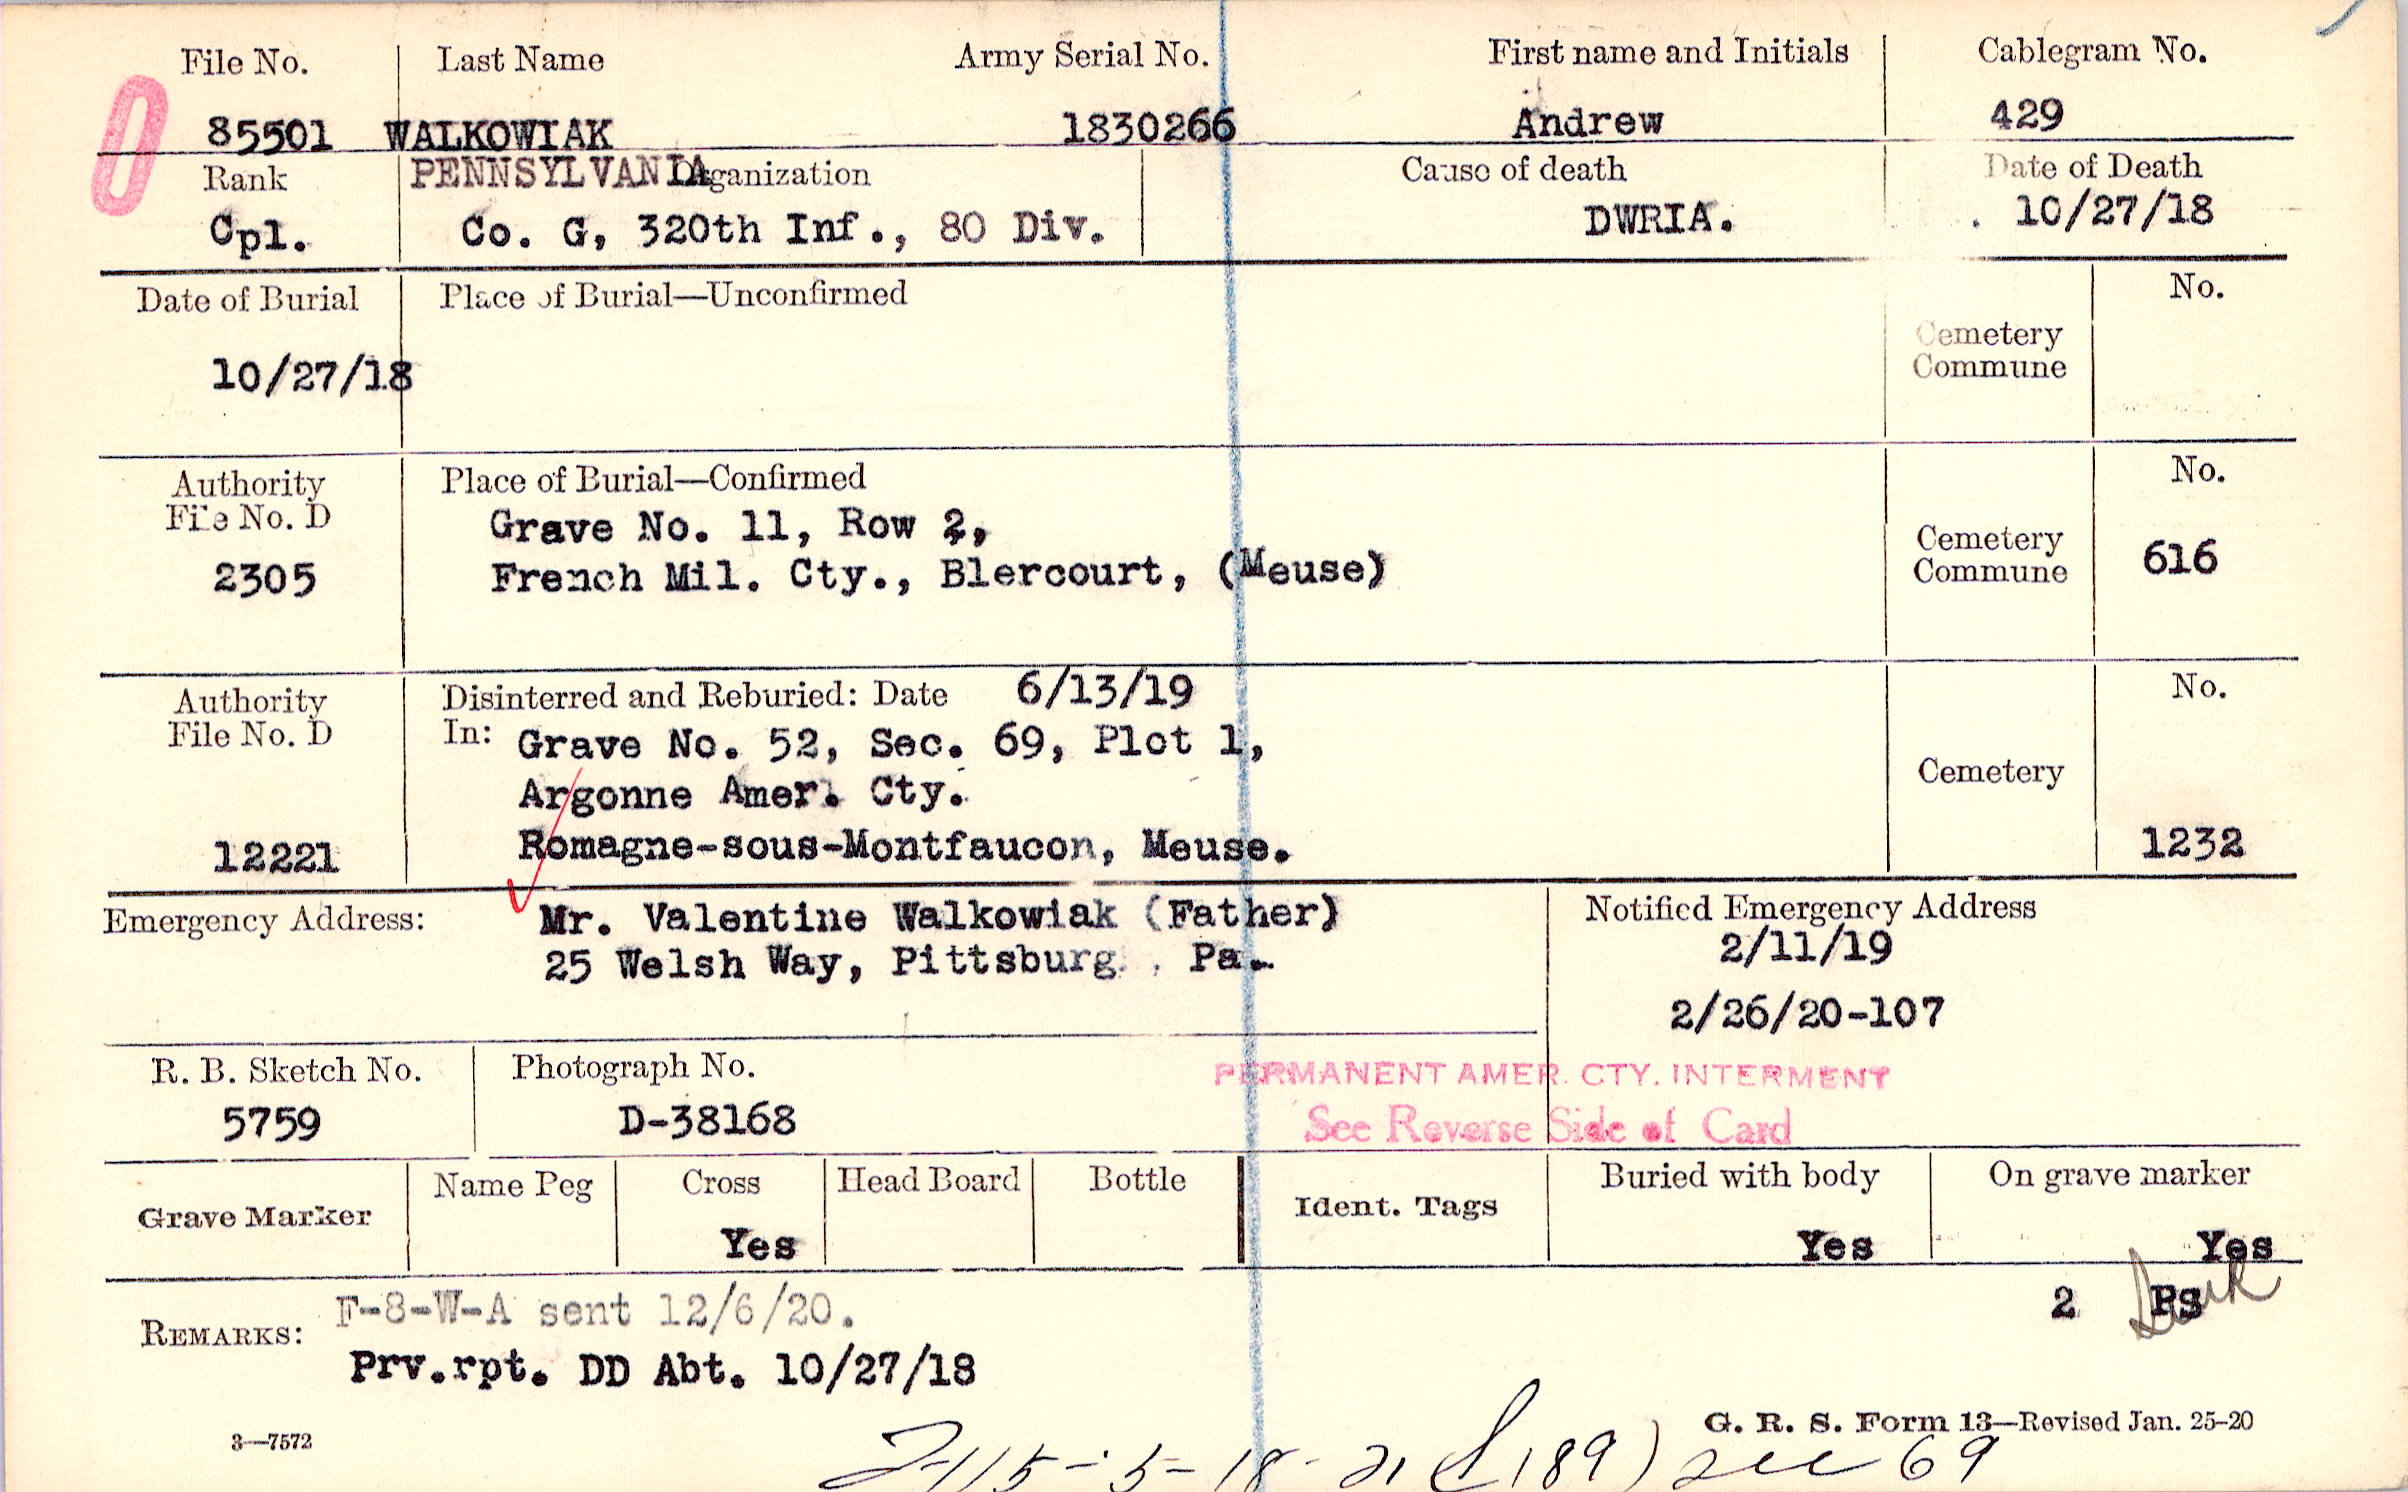 File No. Last Name Army Serial No. First name and Initials Cablegram No.
85501 WALKOWIAK 1830266 Andrew 429
Rank PENNSYLVANIA Organization Cause of death Date of Death
Cpl. Co. G, 320th Inf., 80 Div. DWRIA. 10/27/18
Date of Burial Place of Burial—Unconfirmed No.
Cemetery
Commune
10/27/18
Authority Place of Burial—Confirmed No.
File No. D Grave No. 11, Row 2,
Cemetery
2305 French Mil. Cty., Blercourt, (Meuse) Commune 616
Authority Disinterred and Reburied: Date 6/13/19 No.
File No. D In: Grave No. 52, Sec. 69, Plot 1,
Argonne Amer. Cty. Cemetery
12221 Romagne-sous-Montfaucon, Meuse. 1232
Emergency Address: Mr. Valentine Walkowiak (Father) Notified Emergency Address
25 Welsh Way, Pittsburg , Pa. 2/11/19
2/26/20-107
R. B. Sketch No. Photograph No. PERMANENT AMER. CTY. INTERMENT
5759 D-38168 See Reverse Side of Card
Grave Marker Name Peg Cross Head Board Bottle Ident. Tags Buried with body On grave marker
Yes Yes Yes
REMARKS: F-8-W-A sent 12/6/20. 2 PS
Prv.rpt. DD Abt. 10/27/18
3—7572 G. R. S. Form 13—Revised Jan. 25-20
5-18-21 (189) sec 69